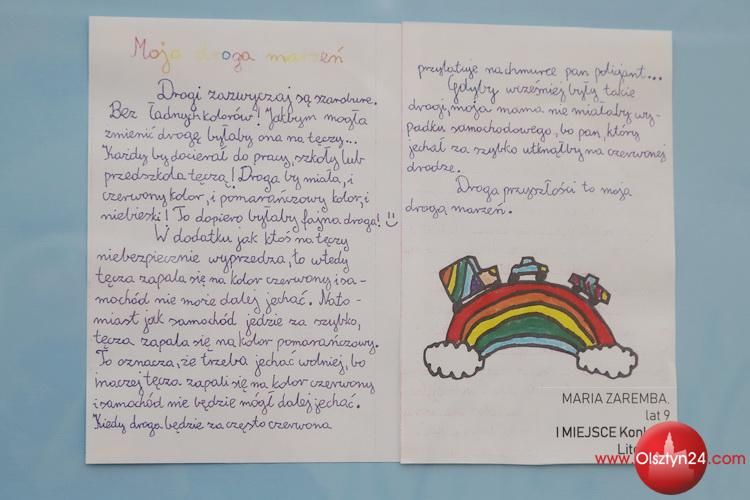 Moja droga marzeń
Drogi zazwyczaj są szarobure.
Bez ładnych kolorów! Jakbym mogła
zmienić drogę byłaby ona na tęczy...
Każdy by docierał do pracy, szkoły lub
przedszkola tęczą! Droga by miała, i
czerwony kolor, i pomarańczowy kolor, i
niebieski! To dopiero byłaby fajna droga! :)
W dodatku jak ktoś na tęczy
niebezpiecznie wyprzedza, to wtedy
tęcza zapala się na kolor czerwony i sa-
mochód nie może dalej jechać. Nato-
miast jak samochód jedzie za szybko,
tęcza zapala się na kolor pomarańczowy.
To oznacza, że trzeba jechać wolniej, bo
inaczej tęcza zapali się na kolor czerwony
i samochód nie będzie mógł dalej jechać.
Kiedy droga będzie za często czerwona
przylatuje na chmurce pan policjant...
Gdyby wcześniej były takie
drogi, moja mama nie miałaby wy-
padku samochodowego, bo pan, który
jechał za szybko utknąłby na czerwonej
drodze.
Droga przyszłości to moja
droga marzeń.
MARIA ZAREMBA,
lat 9
I MIEJSCE Konk
Lite
www.Olsztyn24.com